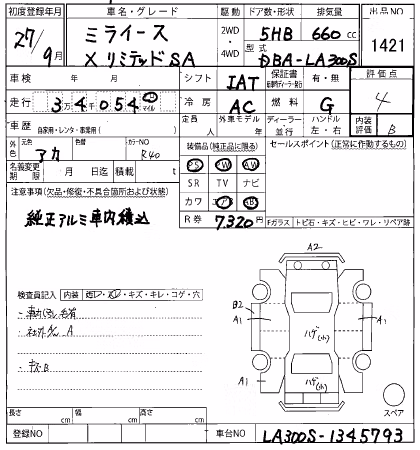 初度登録年月
車名・グレード
駆動
ドア数・形状
排気量
出品NO
27/9月
ミライース
X リミテッド SA
2WD・4WD
5HB
660 cc
型式
DBA-LA300S
1421
車検 年 月
シフト
IAT
保証書
有・無
評価点
4
走行
34054
マイル
冷房
AC
燃料
G
車歴
自家用・レンタ・事業用( )
定員
人
外車モデル
年
ディーラー・並行
ハンドル
左・右
内装評価
B
外色
元色
アカ
色替
カラーNO
R40
装備品(純正品に限る)
セールスポイント(正常に作動するもの)
名義変更期限
月 日迄
積載
t
PS CW AW
SR TV ナビ
カワ エアB ABS
R券
7,320円
注意事項(欠品・修復・不具合箇所および状態)
純正アルミ車内積込
Fガラス
トビ石・キズ・ヒビ・ワレ・リペア跡
A2
検査員記入
内装
・キズ・キレ・コゲ・穴
A
B2
A1
A1
ハゲ(小)
ハゲ(小)
A1
スペア
長さ cm
幅 cm
高さ cm
登録NO
車台NO
LA300S-1345793